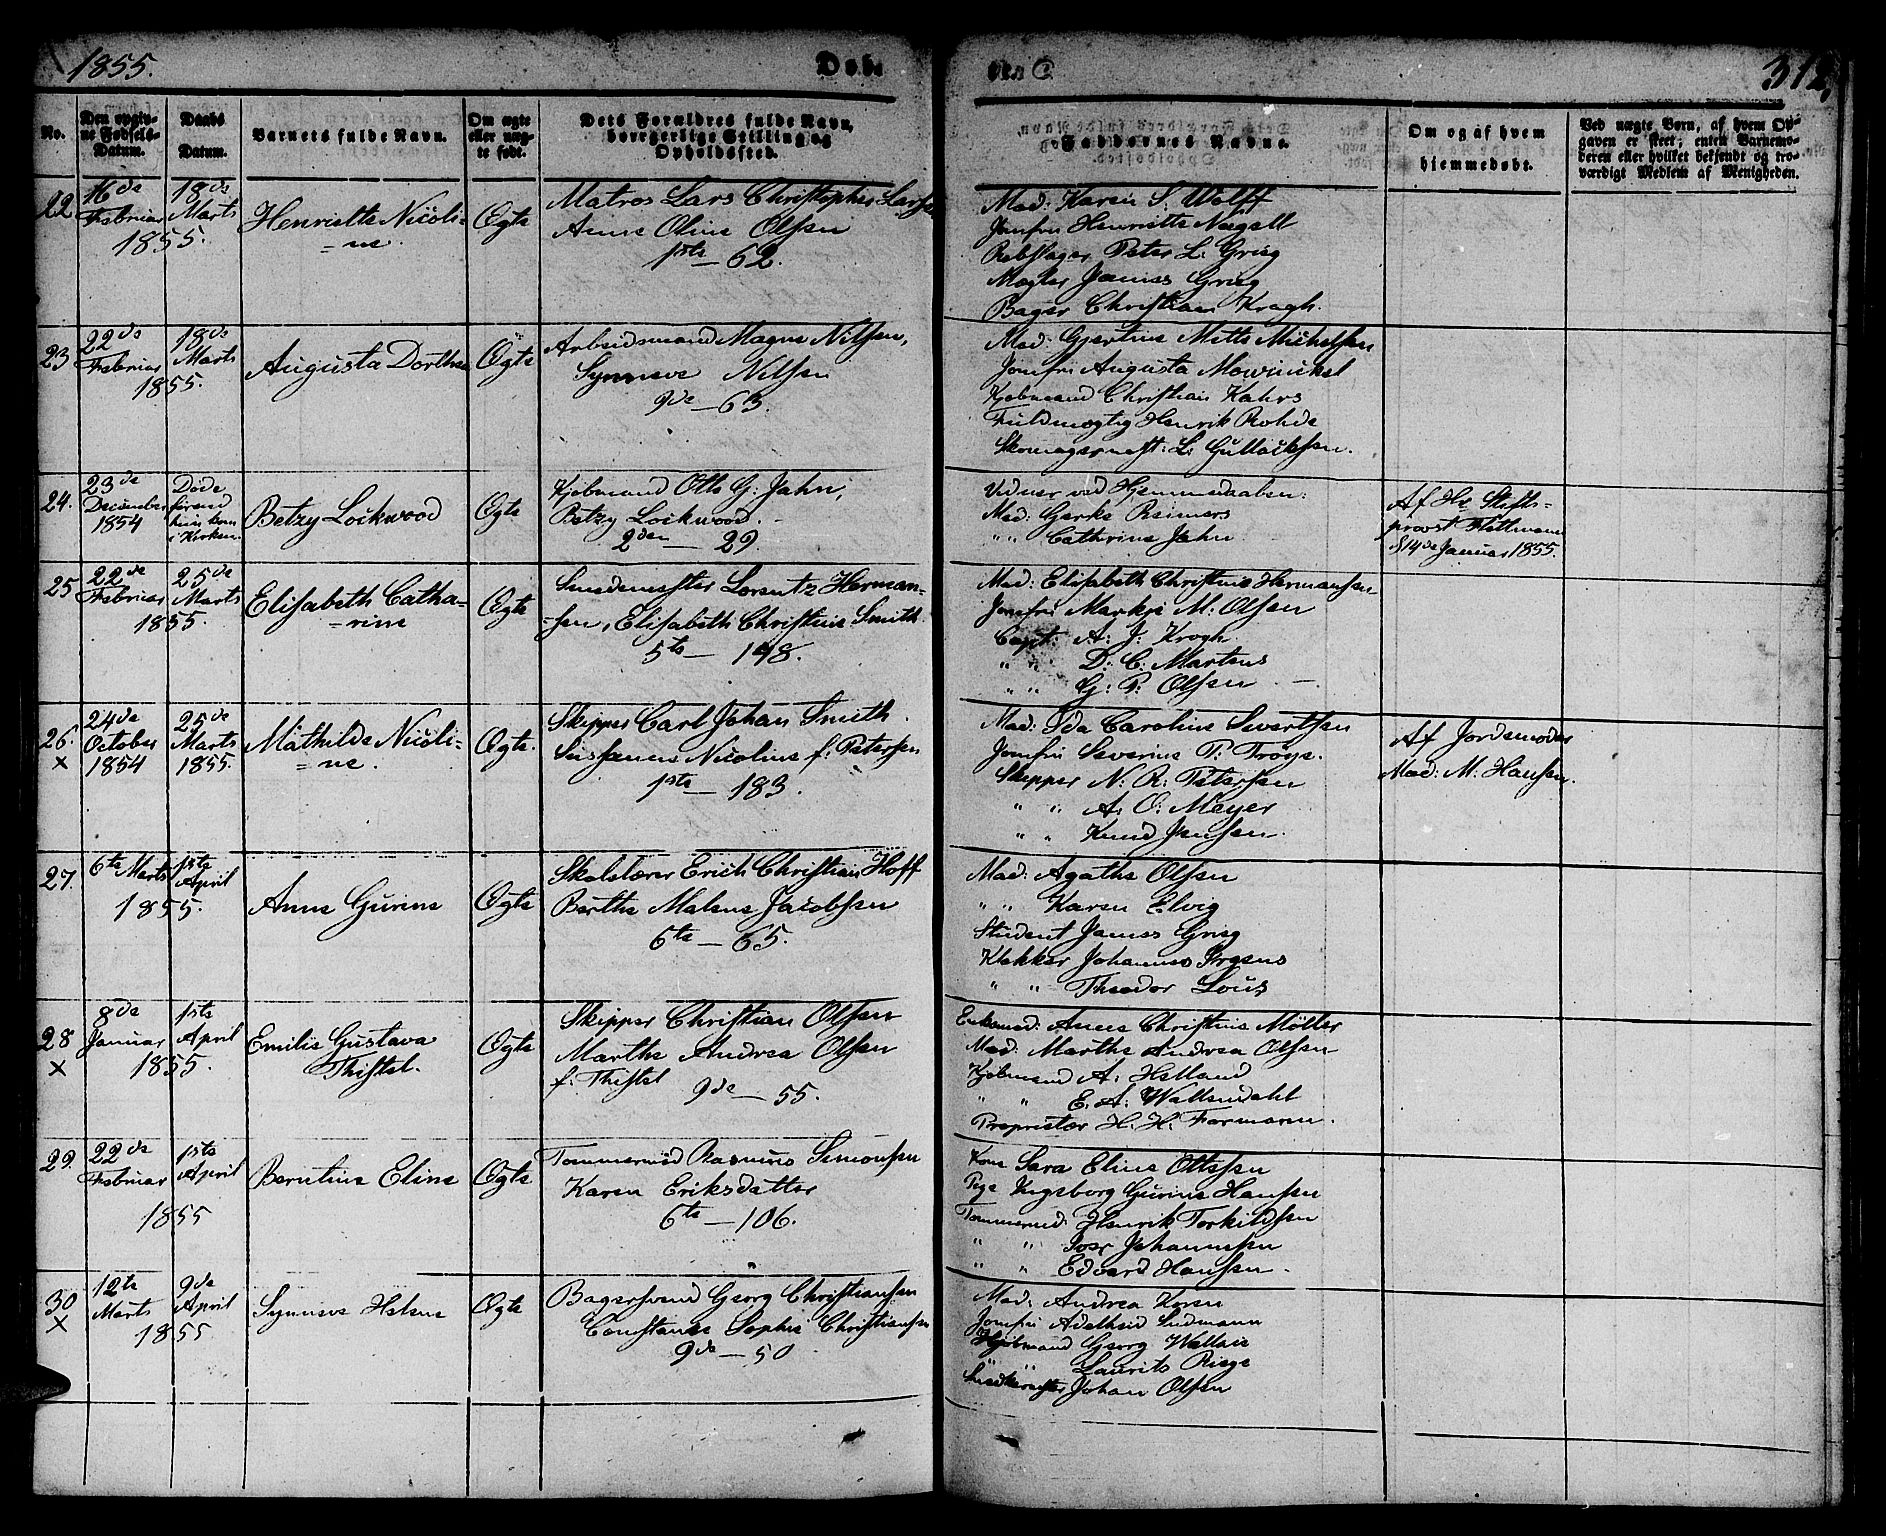 1855.
Døb.
312.
No.
Den opgiv-
ne Fødsels-
Datum.
Daabs
Datum.
Barnets fulde Navn.
Om ægte
eller uæg-
te født.
Dets Forældres fulde Navn,
borgerlige Stilling og
Opholdssted.
Faddernes Navne.
Om og af hvem
hjemmedøbt.
Ved uægte Børn, af hvem Op-
gaven er skeet; enten Barnemo-
deren eller hvilket bekjendt og tro-
værdigt Medlem af Menigheden.
22
16de
Februar
18de
Marts
1855.
Henriette Nicoli-
=ne.
Ægte
Matros Lars Christopher Larsen
Anne Oline Olsen
1ste — 62.
Mad: Karen S. Wolff
Jomfru Henriette Nagell
Rebslager Peter L. Grieg
Mægler James Grieg
Bager Christian Kragh.
23
22de
Februar
18de
Marts
1855.
Augusta Dorthea
Ægte
Arbeidsmand Magne Nilsen,
Synneve Nilsen
9de — 63.
Mad: Gjertine Mette Michelsen
Jomfru Augusta Mowinckel
Kjøbmand Christian Kahrs
Fuldmægtig Henrik Rohde
Skomagermest: L. Gullacksen.
24.
23de
December
1854
Døde
førend
hun kom
i Kirken.
Betzy Lockwood
Ægte
Kjøbmand Otto G. Jahn,
Betzy Lockwood. -
2den — 29.
Vidner ved Hjemmedaaben:
Mad: Gerke Reimers
" " Cathrine Jahn
Af Hr. Stifts=
provst
d 14de Januar 1855.
25
22de
Februar
25de
Marts
1855.
Elisabeth Catha-
=rine
Ægte
Smedemester Lorentz Herman-
=sen, Elisabeth Christine Smith.
5te — 148.
Mad: Elisabeth Christine Hermansen
Jomfru M. Olsen
Capt: A: J: Krogh.
" " D: C: Martens
" " G: P: Olsen —
26.
×
24de
October
1854
25de
Marts
1855.
Mathilde Nicoli-
=ne.
Ægte.
Skipper Carl Johan Smith.
Susanne Nicoline f: Petersen
1ste — 183.
Mad: Ida Caroline Sivertsen
Jomfru Severine P: Trøye.
Skipper N: R: Petersen
" " A: O: Meyer
" " Knud Jansen.
Af Jordemoder
Mad: M: Hansen.
27.
6te Marts
1ste
April
1855.
Anne Gurine
Ægte
Skolelærer Erich Christian Hoff
Berthe Malene Jacobsen
6te — 65.
Mad: Agathe Olsen
" " Karen Elvig
Student James Grieg
Klokker Johannes
" " Theodor Lous
28
×
8de
Januar
1ste
April
1855.
Emilie Gustava
Thistel.
Ægte
Skipper Christian Olsen
Marthe Andrea Olsen
f: Thistel
9de — 55.
Enkemad: Anne Christine Möller
Mad: Marthe Andrea Olsen
Kjøbmand A: Helland
" " E. A: Wallendahl
Proprietær H. H. Formann.
29.
22de
Februar
1ste
April
1855
Berntine Eline
Ægte
Tømmermd Rasmus Simonsen
Karen Eriksdatter
6te — 106.
Kone Sara Eline Ottesen
Pige Ingeborg Gurine Hansen
Tømmermd: Henrik Torkildsen
" " Iver Johannesen
" " Edvard Hansen -
30
×
12te
Marts
9de
April
1855
Synneve Helene
Ægte
Bagersvend Georg Christiansen
Constance Sophie Christiansen
9de — 50
Mad: Andrea Koren
Jomfru Adelheid Sudmann
Kjøbmand Georg Wallace
" " Laurits Riege
Snedkermester Johan Olsen